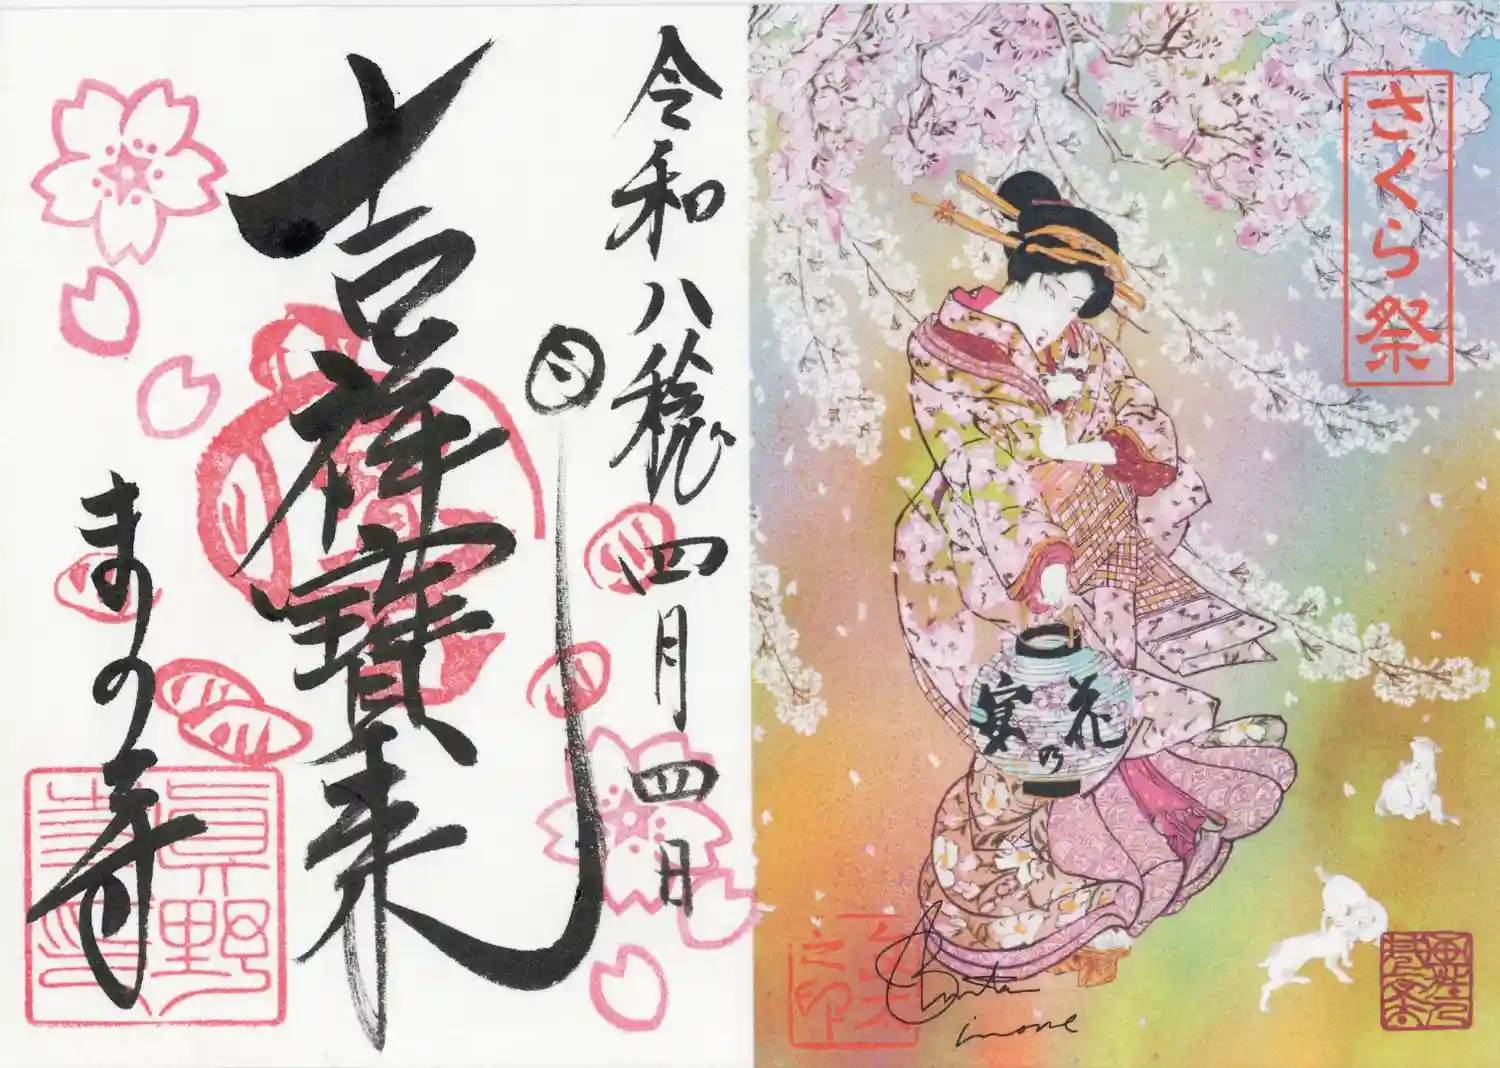 令和八穐四月四日
吉祥寳来
まの寺
さくら祭
花の宴